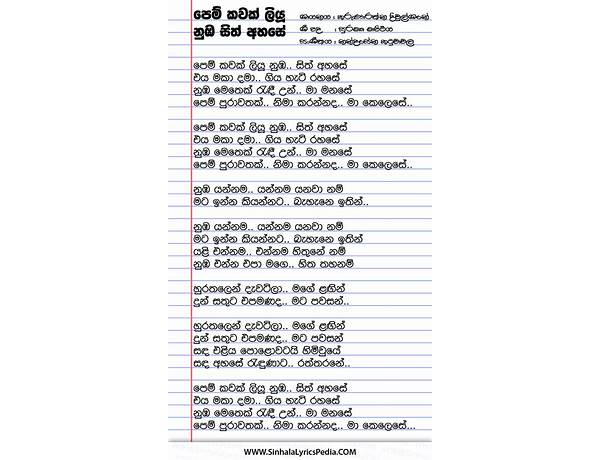 පෙම් කවක් ලියූ
නුඹ සිත් අහසේ
පෙම් කවක් ලියූ නුඹ.. සිත් අහසේ
එය මකා දමා.. ගිය හැටි රහසේ
නුඹ මෙතෙක් රැඳී උන්.. මා මනසේ
පෙම් පුරාවතක්.. නිමා කරන්නද.. මා කෙලෙසේ..
පෙම් කවක් ලියූ නුඹ.. සිත් අහසේ
එය මකා දමා.. ගිය හැටි රහසේ
නුඹ මෙතෙක් රැඳී උන්.. මා මනසේ
පෙම් පුරාවතක්.. නිමා කරන්නද.. මා කෙලෙසේ..
නුඹ යන්නම.. යන්නම යනවා නම්
මට ඉන්න කියන්නට.. බැහැනෙ ඉතින්..
නුඹ යන්නම.. යන්නම යනවා නම්
මට ඉන්න කියන්නට.. බැහැනෙ ඉතින්
යළි එන්නම.. එන්නම හිතුනේ නම්
නුඹ එන්න එපා මගෙ.. හිත තහනම්
හුරතලෙන් දැවටිලා.. මගේ ළඟින්
දුන් සතුට එපමණද.. මට පවසන්..
හුරතලෙන් දැවටිලා.. මගේ ළඟින්
දුන් සතුට එපමණද.. මට පවසන්
සඳ එළිය පොළොවටයි හිමිවුයේ
සඳ අහසේ රැඳුණාට.. රත්තරනේ..
පෙම් කවක් ලියූ නුඹ.. සිත් අහසේ
එය මකා දමා.. ගිය හැටි රහසේ
නුඹ මෙතෙක් රැඳී උන්.. මා මනසේ
පෙම් පුරාවතක්.. නිමා කරන්නද.. මා කෙලෙසේ...
www.SinhalaLyricsPedia.com